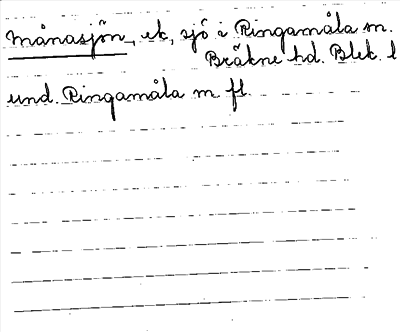 Månasjön, ek, sjö i Ringamåla sn.
Bräkne hd. Blek. l
und. Ringamåla m fl.